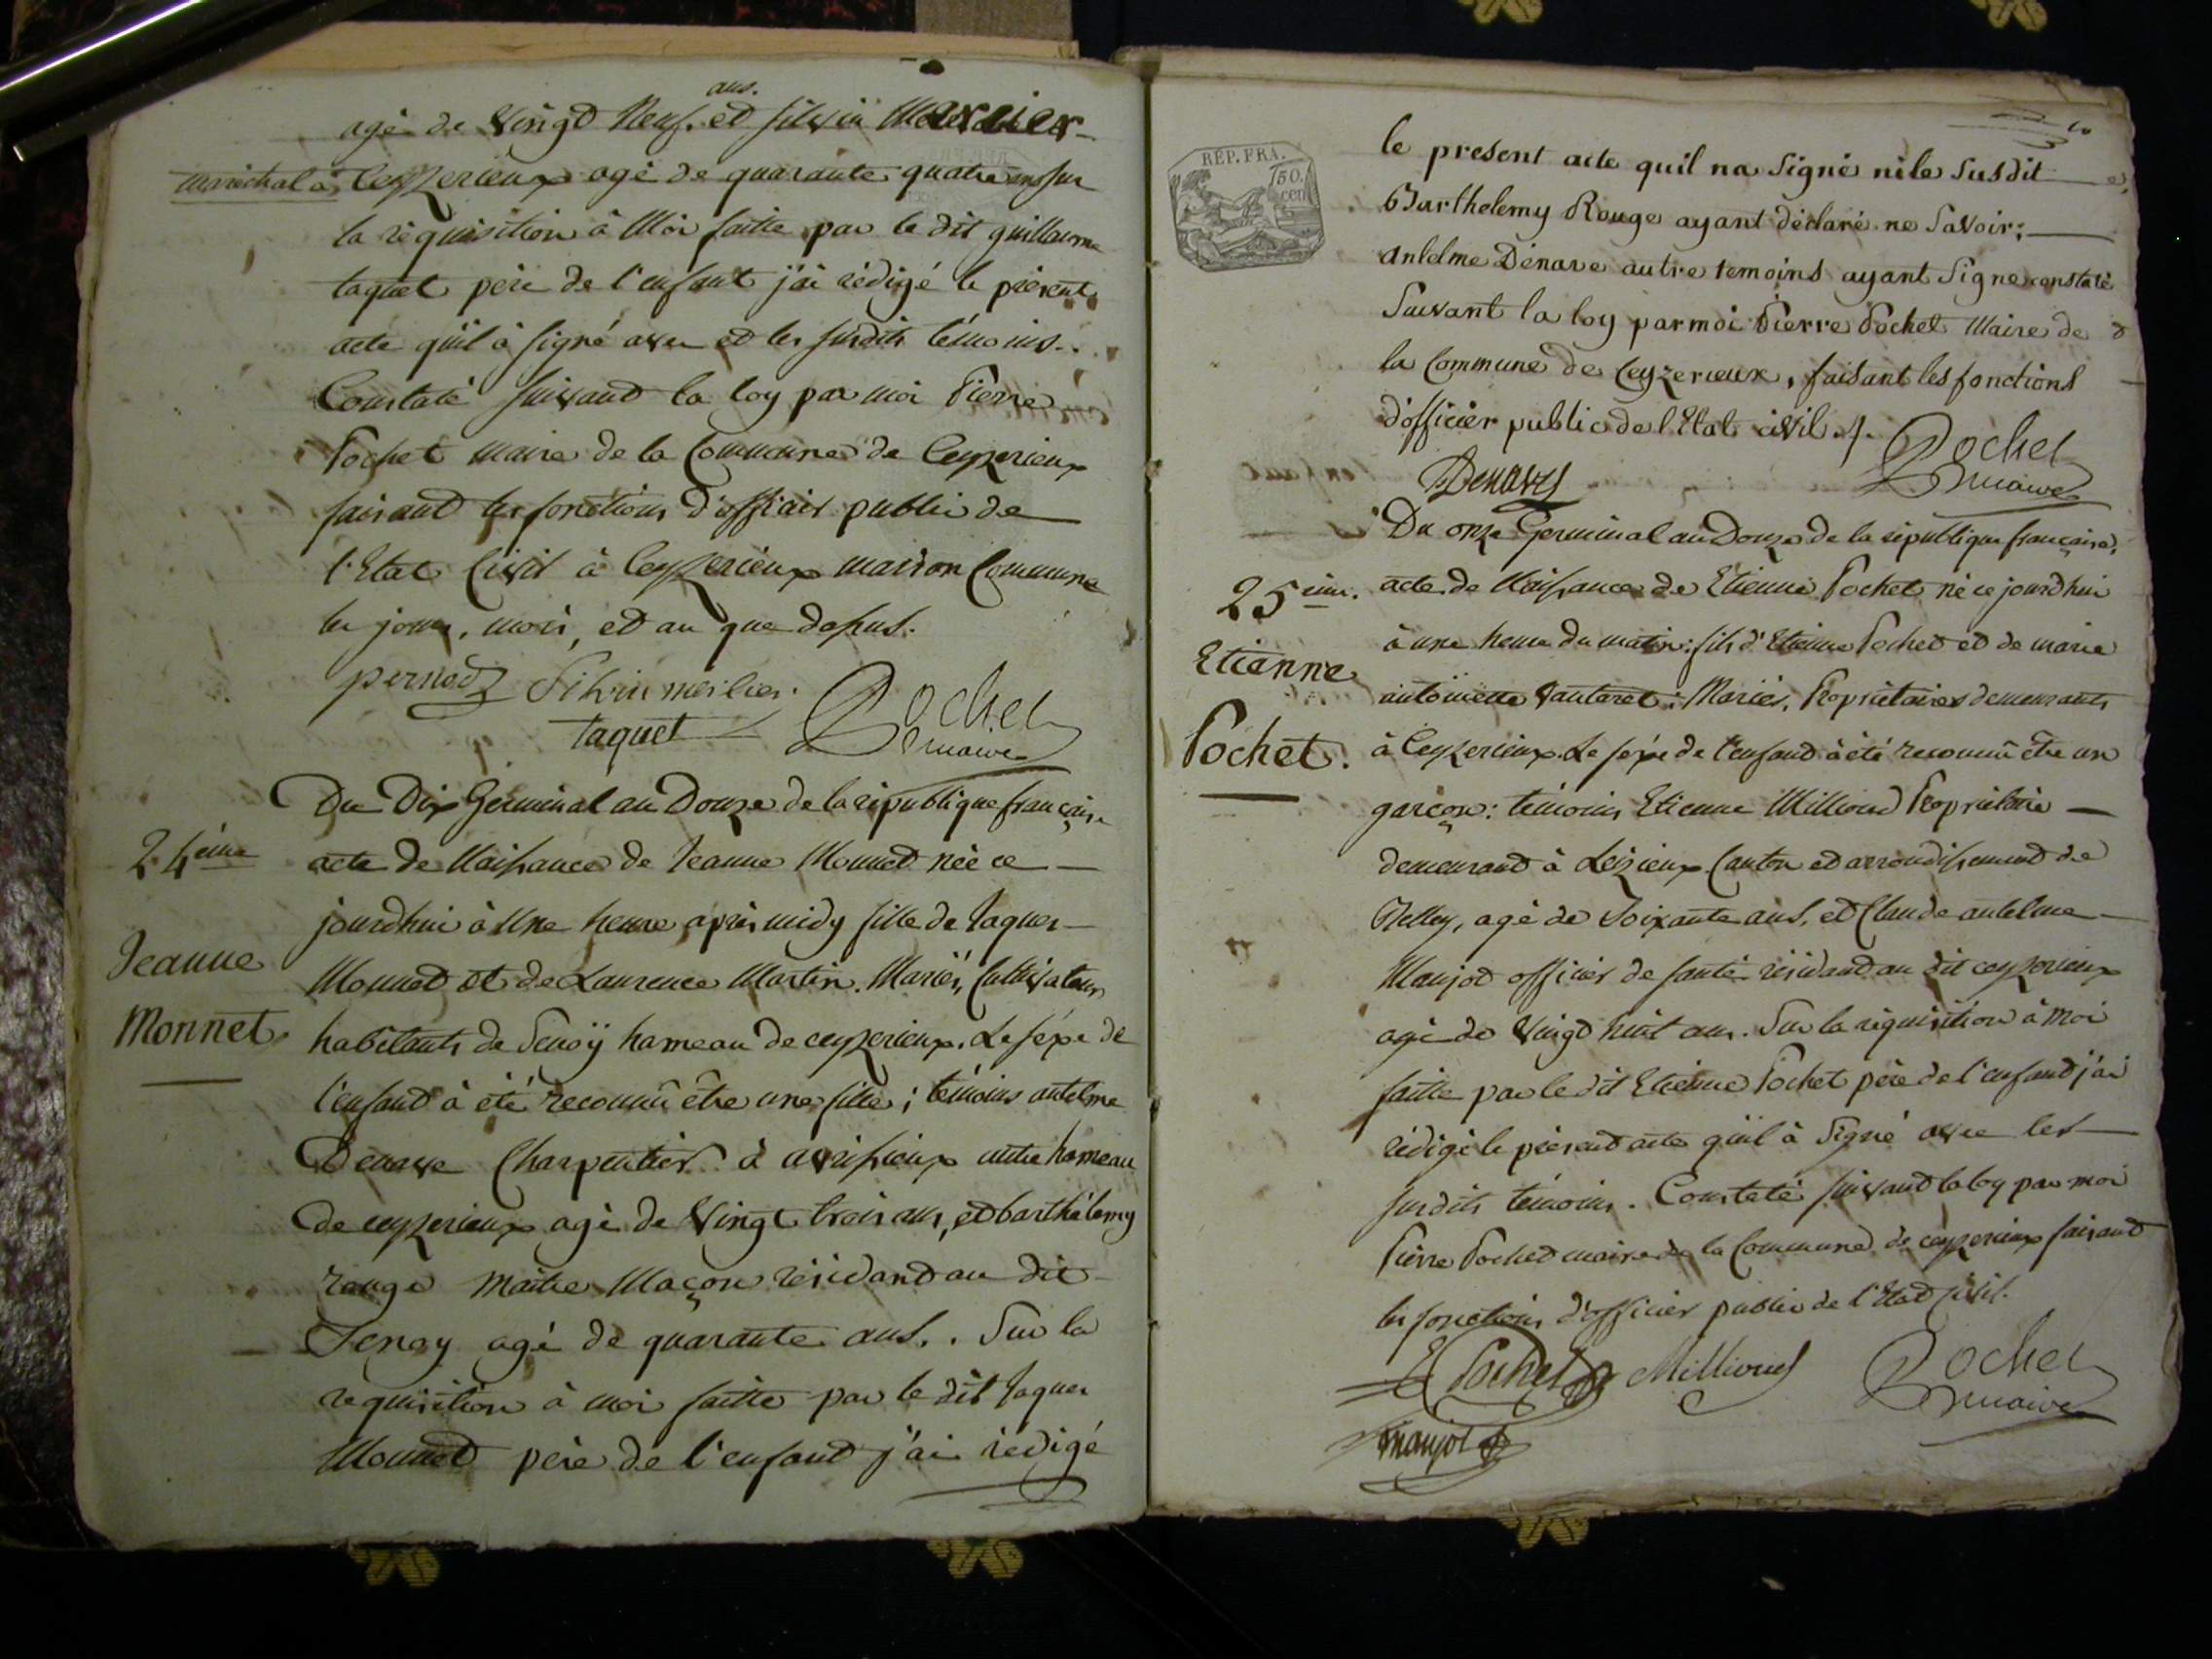 ans.
agé de Vingd Neuf. et Silvin Mercier
marechal à Ceyzerieux agé de quarante quatre ans sur
la réquisition à Moi faitte par le dit guillaume
taquet pére de l'enfant j'ai rédigé le présent
acte qu'il à signé avec et les susdits témoins..
Constaté suivand la loy par moi Pierre
Pochet maire de la Commune de Ceyzerieux
faisand les fonctions d'officier public de
l'Etat Civil à Ceyzerieux maison Commune
les jour, mois, et an que dessus.
pernod Silvin mercier.
taquet Pochet
maire
Du Dix Germinal an Douze de la république française
24ème
acte de Naissance de Jeanne Monned née ce
jourdhui à Une heure aprés midy fille de Jaques
Jeanne
Monnet.
Monned et de Laurence Martin. Mariés, Cultivateurs
habitants de Senoÿ hameau de ceyzerieux. Le séxe de
l'enfand à été reconnû être une fille; témoins antelme
Denave Charpentier à avrissieux autre hameau
de ceyzerieux agé de Vingt trois ans, et barthélemy
rouge Maitre Maçon résidand au dit
Senoy agé de quarante ans.. Sur la
requisition à moi faitte par le dit Jaques
Monned pére de l'enfand j'ai rédigé
RÉP. FRA.
50.
cen
le present acte quil na signé ni le susdit
Barthelemy Rouge ayant déclaré ne savoir;
Anlelme Dénave autre temoins ayant signe constaté
Suivant la loy par moi Pierre Pochet Maire de
la Commune de Ceyzerieux, faisant les fonctions
d'officier public de l'Etat civil ./.
Denave Pochet
maire
Du onze Germinal an Douze de la république française,
25ème.
acte de Naissance de Etienne Pochet né ce jourdhui
à une heure du matin: fils d'Etienne Pochet et de marie
Etienne
Pochet.
antoinette Vautaret: Mariés, Propriétaires demeurants
à Ceyzerieux. Le séxe de l'enfand à été reconnû être un
garçon: témoins Etienne Milliond Propriétaire
demeurand à Lezieux Canton et arrondissement de
Belley, agé de Soixante ans, et Claude antelme
Maujod officier de santé résidand au dit ceyzerieux
agé de Vingd huit ans. Sur la réquisition à moi
faitte par le dit Etienne Pochet pére de l'enfand j'ai
rédigé le présend acte qu'il à signé avec les
susdits témoins. Constaté suivand la loy par moi
Pierre Pochet maire de la Commune de ceyzerieux faisand
les fonctions d'officier public de l'Etat civil.
E Pochet Pochet
maire
maujot